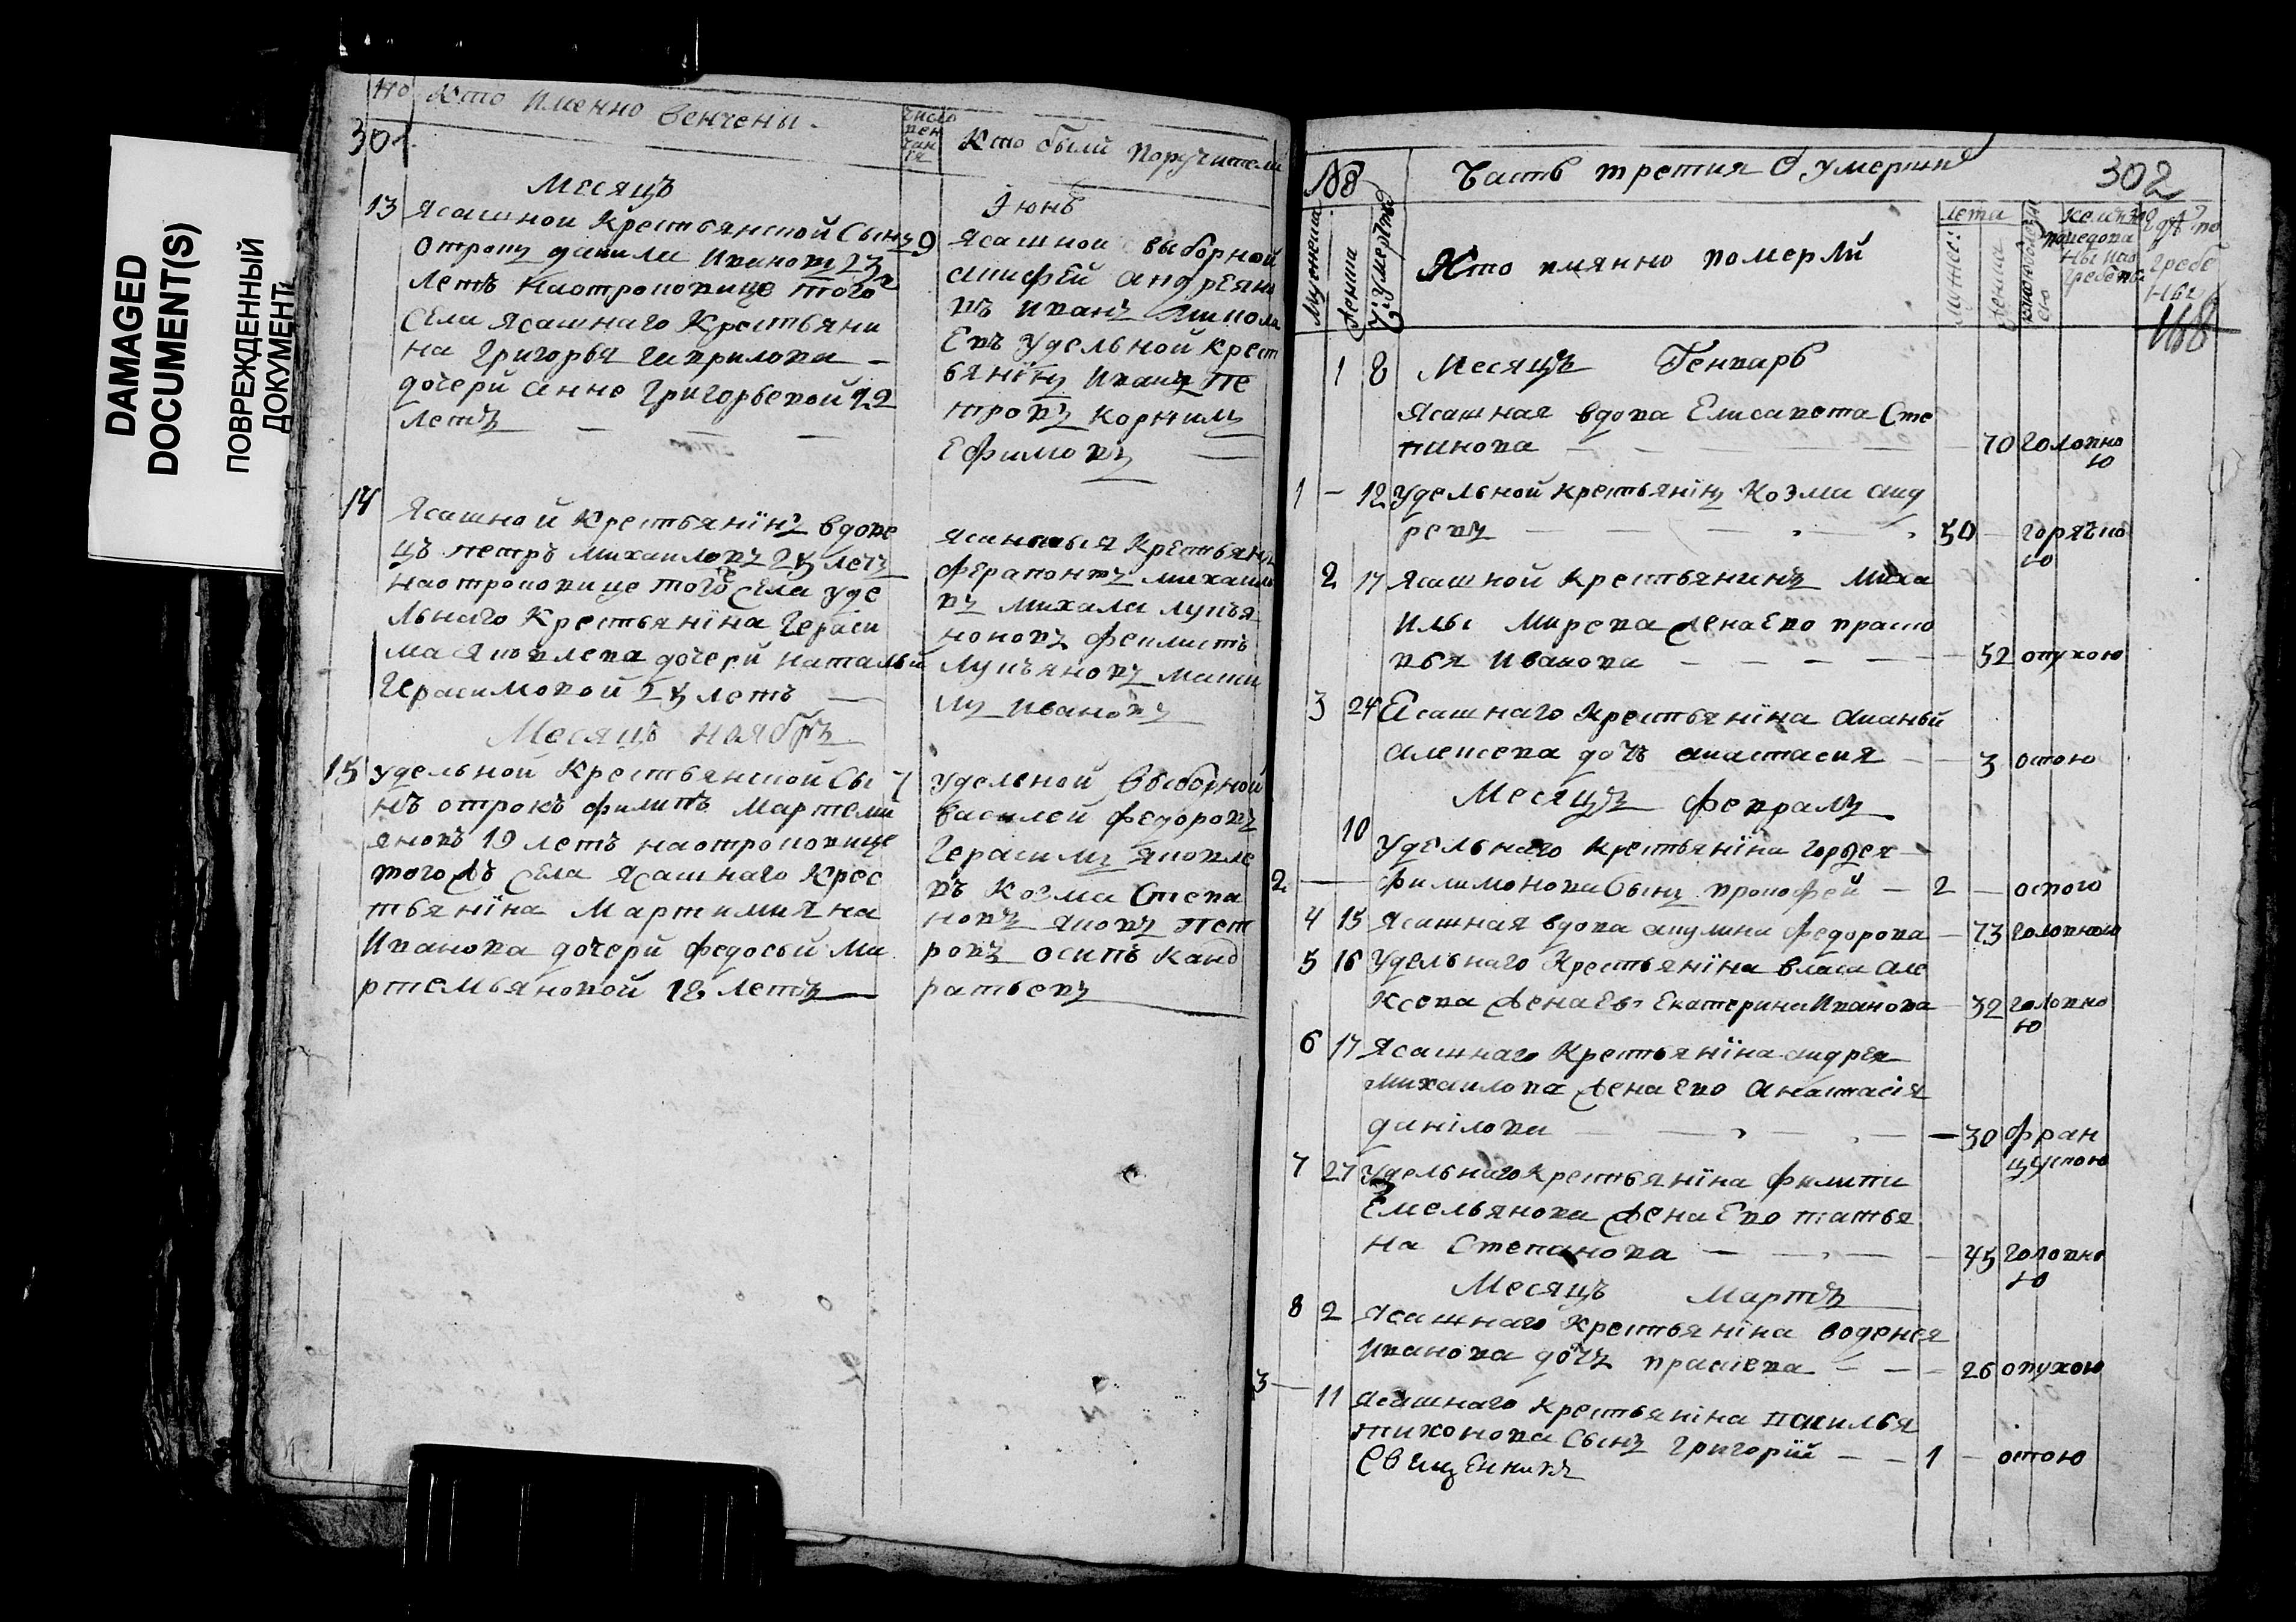 DAMAGED
DOCUMENT(S)
ПОВРЕЖДЕННЫЙ
ДОКУМЕНТ
Кто именно венчены
число
вен
чан
ія
Кто был поручители
301
Месяцъ
Іюнь
13
Ясашной крестьянской сынъ
9
отрокъ данила Ивановъ 23
летъ наотроковице того
села ясашнаго крестьяни
на Григорья гаврилова
дочери анне григорьевой 22
летъ
Ясашной выборной
андреяно
въ иванъ
евъ удельной крест
ьянинъ иванъ пе
тровъ корнилъ
ефимовъ
14
Ясашной крестьянїнъ вдове
цъ петръ михаиловъ 25 летъ
наотроковице того села уде
льнаго крестьянїна гераси
ма яковлева дочери натальи
герасимовой 25 летъ
ясашныя крестьян
ферапонтъ михаило
въ михаила лукъя
новъ
лукъяновъ
иванову
Месяцъ ноябрь
15
удельной крестьянской сы
7
нъ отрокъ филипъ мартеми
яновъ 19 летъ наотроковице
того жъ села ясашнаго крес
тьянїна Мартимияна
Иванова дочери федосьи ма
ртемьяновой 18 летъ
удельной выборной
василей федоровъ
герасимъ яковле
въ козма степа
новъ яковъ пет
ровъ осипъ канд
ратьевъ
Часть третия о умерши
302
Мужеска
женска
Ч: умертва
Кто имянно померли
лета
мужес:
женска
кемъ
гдѣ по
гребе
ны
168
1 8 Месяцъ Генварь
Ясашная вдова Елисавета Сте
панова 70 головно
ю
1 12 удельной крестьянїнъ козма анд
реевъ 50 горячко
ю
2 17 ясашной крестьянинъ миха
илы Мирева жена ево праско
вья иванова 52 опухою
3 24 Ясашнаго крестьянїна ананьи
алексева дочь анастасия 3 оспою
Месяцъ февраль
10
удельнаго крестьянїна гордея
2 филимонова сынъ прокофей 2 оспою
4 15 Ясашная вдова акулина федорова 73 головною
5 16 удельнаго крестьянїна власа але
ксева жена ево екатерина иванова 32 головно
ю
6 17 ясашнаго крестьянїна андрея
михаилова жена ево анастасія
данілова 30 фран
цускою
7 27 удельнаго крестьянїна филипа
емельянова жена ево татья
на степанова 45 головно
ю
Месяцъ Мартъ
8 2 ясашнаго крестьянїна
иванова дочь праскева 26 опухою
3
11 ясашнаго крестьянїна
тихонова сынъ григорїй 1 оспою
Свещенникъ